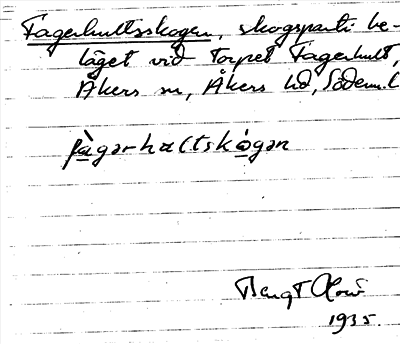 Fagerhultsskogen, skogsparti be-
läget vid torpet Fagerhult,
Åkers sn, Åkers hd, Söderm. l
fàgərhaltskógən
Bengt
1935.